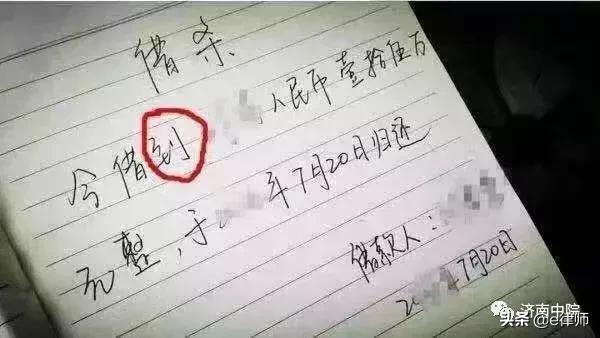 借条
今借到 人民币壹拾伍万
元整,于 年7月20日归还
借款人:
2 年7月20日
济南中院
头条 @e律师